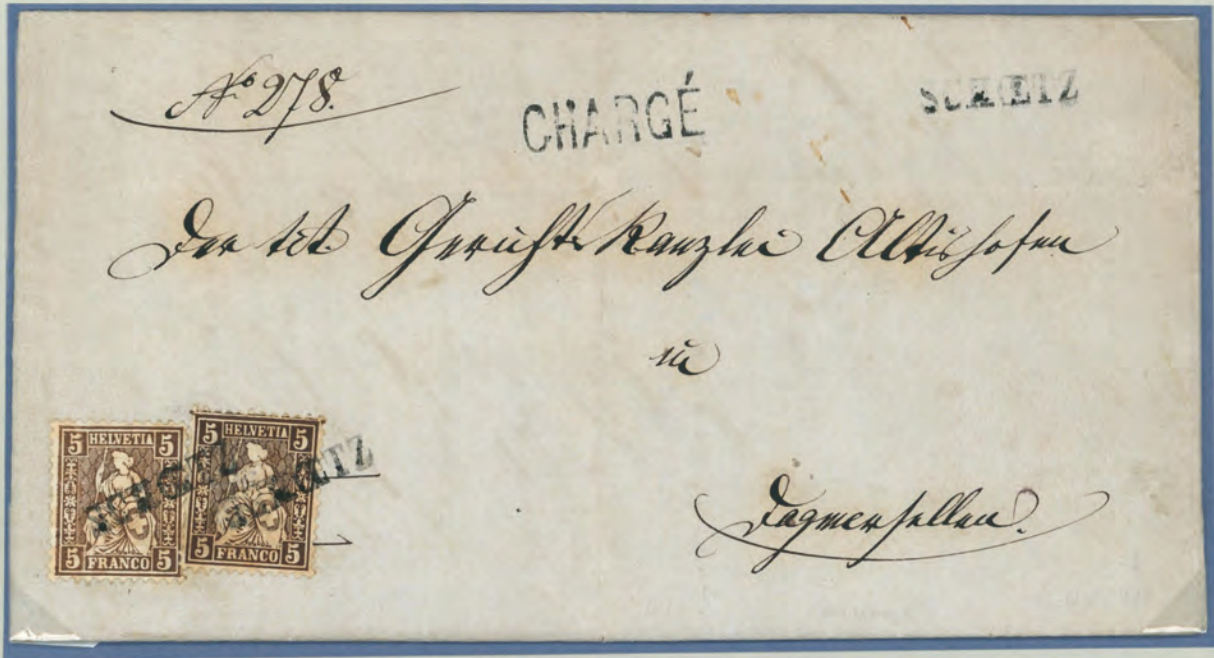 No 278.
CHARGÉ
SCHŒTZ
Der tit. Gerichts Kanzlei Altishofen
in
Dagmersellen.
5 HELVETIA 5
5 FRANCO 5
5 HELVETIA 5
5 FRANCO 5
SCHŒTZ
SCHŒTZ